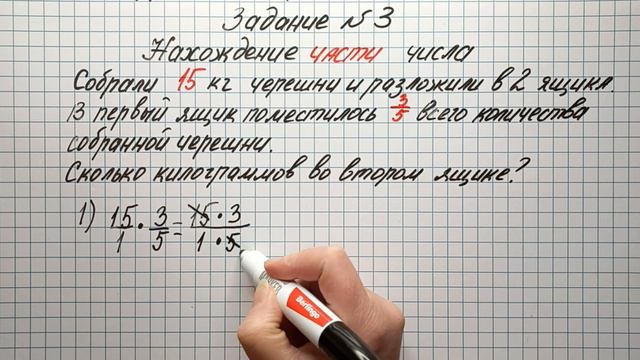 Задание №3
Нахождение части числа
Собрали 15 кг черешни и разложили в 2 ящика.
В первый ящик поместилось 3/5 всего количества
собранной черешни.
Сколько килограммов во втором ящике?
1) 15/1 · 3/5 = 15 · 3 / 1 · 5
Berlingo